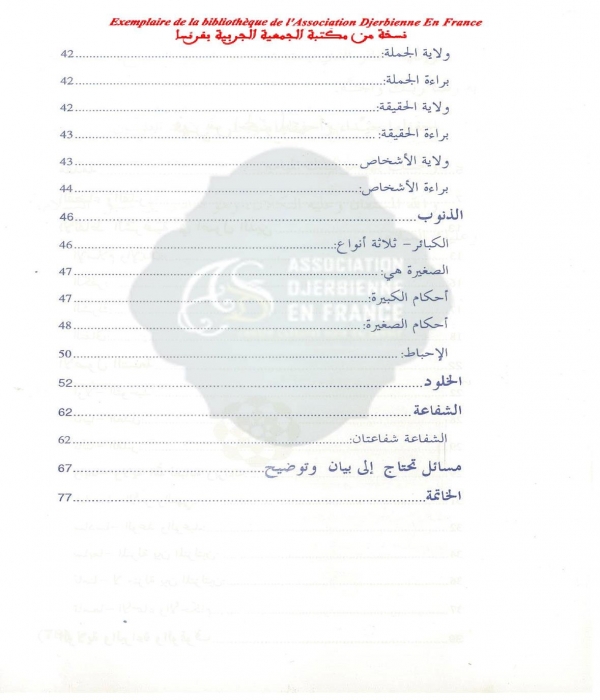 Exemplaire de la bibliothèque de l'Association Djerbienne En France
نسخة من مكتبة الجمعية الجربية بفرنسا
ولاية الجملة:........................42
براءة الجملة:........................42
ولاية الحقيقة:........................42
براءة الحقيقة:........................43
ولاية الأشخاص........................43
براءة الأشخاص:........................44
الذنوب........................46
الكبائر– ثلاثة أنواع:........................46
الصغيرة هي:........................47
أحكام الكبيرة:........................47
أحكام الصغيرة:........................48
الإحباط:........................50
الخلود........................52
الشفاعة........................62
الشفاعة شفاعتان:........................62
مسائل تحتاج إلى بيان وتوضيح........................67
الخاتمة........................77
ASSOCIATION
DJERBIENNE
EN FRANCE